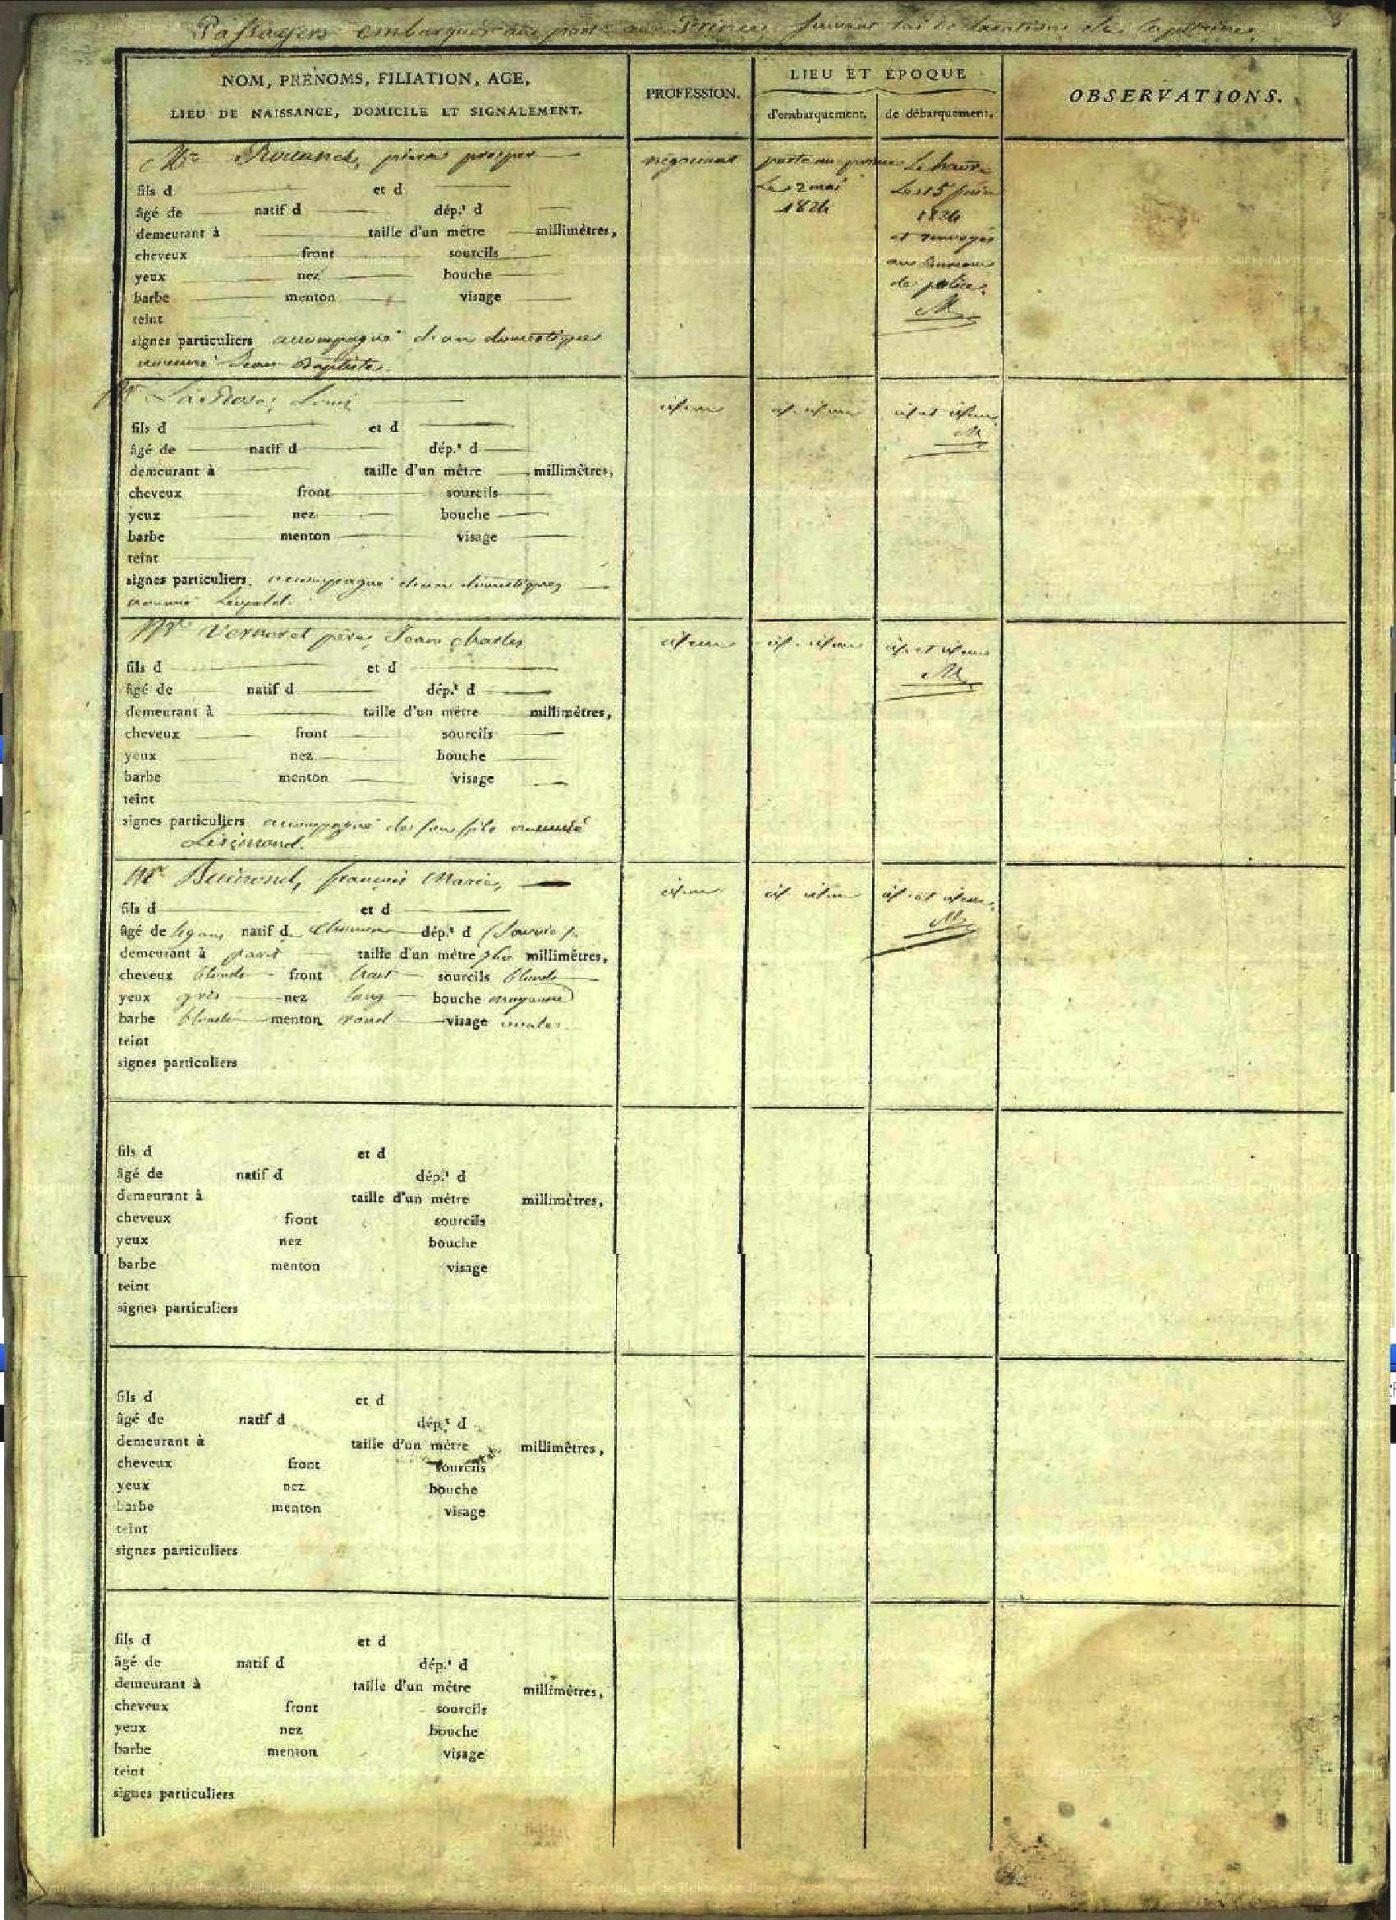 Passagers embarqués au port au Prince suivant la déclaration du Capitaine
NOM, PRÉNOMS, FILIATION, AGE,
LIEU DE NAISSANCE, DOMICILE ET SIGNALEMENT.
PROFESSION.
LIEU ET ÉPOQUE
d'embarquement.
de débarquement.
OBSERVATIONS.
Mr pierre prosper
négociant
porte au prince
Le 2 mai
1824
Le havre
Le 15 juin
1824
et renvoyé
au bureau
de police.
fils d et d
âgé de natif d dép.t d
demeurant à taille d'un mètre millimètres,
cheveux front sourcils
yeux nez bouche
barbe menton visage
teint
signes particuliers accompagné d'un domestique
nommé Jean Baptiste.
Mr Louis
idem
id. idem
id et idem.
fils d et d
âgé de natif d dép.t d
demeurant à taille d'un mètre millimètres,
cheveux front sourcils
yeux nez bouche
barbe menton visage
teint
signes particuliers accompagné d'un domestique
nommé Léopold.
Mr père, Jean Charles
idem
id. idem
id. et idem
fils d et d
âgé de natif d dép.t d
demeurant à taille d'un mètre millimètres,
cheveux front sourcils
yeux nez bouche
barbe menton visage
teint
signes particuliers accompagné de son fils nommé
Mr françois Marie,
idem
id idem
id. et idem.
fils d et d
âgé de ans natif d dép.t d (Savoie).
demeurant à paris taille d'un mètre millimètres,
cheveux blonds front haut sourcils blonds
yeux gris nez long bouche moyenne
barbe blonde menton rond visage ovale.
teint
signes particuliers
fils d et d
âgé de natif d dép.t d
demeurant à taille d'un mètre millimètres,
cheveux front sourcils
yeux nez bouche
barbe menton visage
teint
signes particuliers
fils d et d
âgé de natif d dép.t d
demeurant à taille d'un mètre millimètres,
cheveux front sourcils
yeux nez bouche
barbe menton visage
teint
signes particuliers
fils d et d
âgé de natif d dép.t d
demeurant à taille d'un mètre millimètres,
cheveux front sourcils
yeux nez bouche
barbe menton visage
teint
signes particuliers